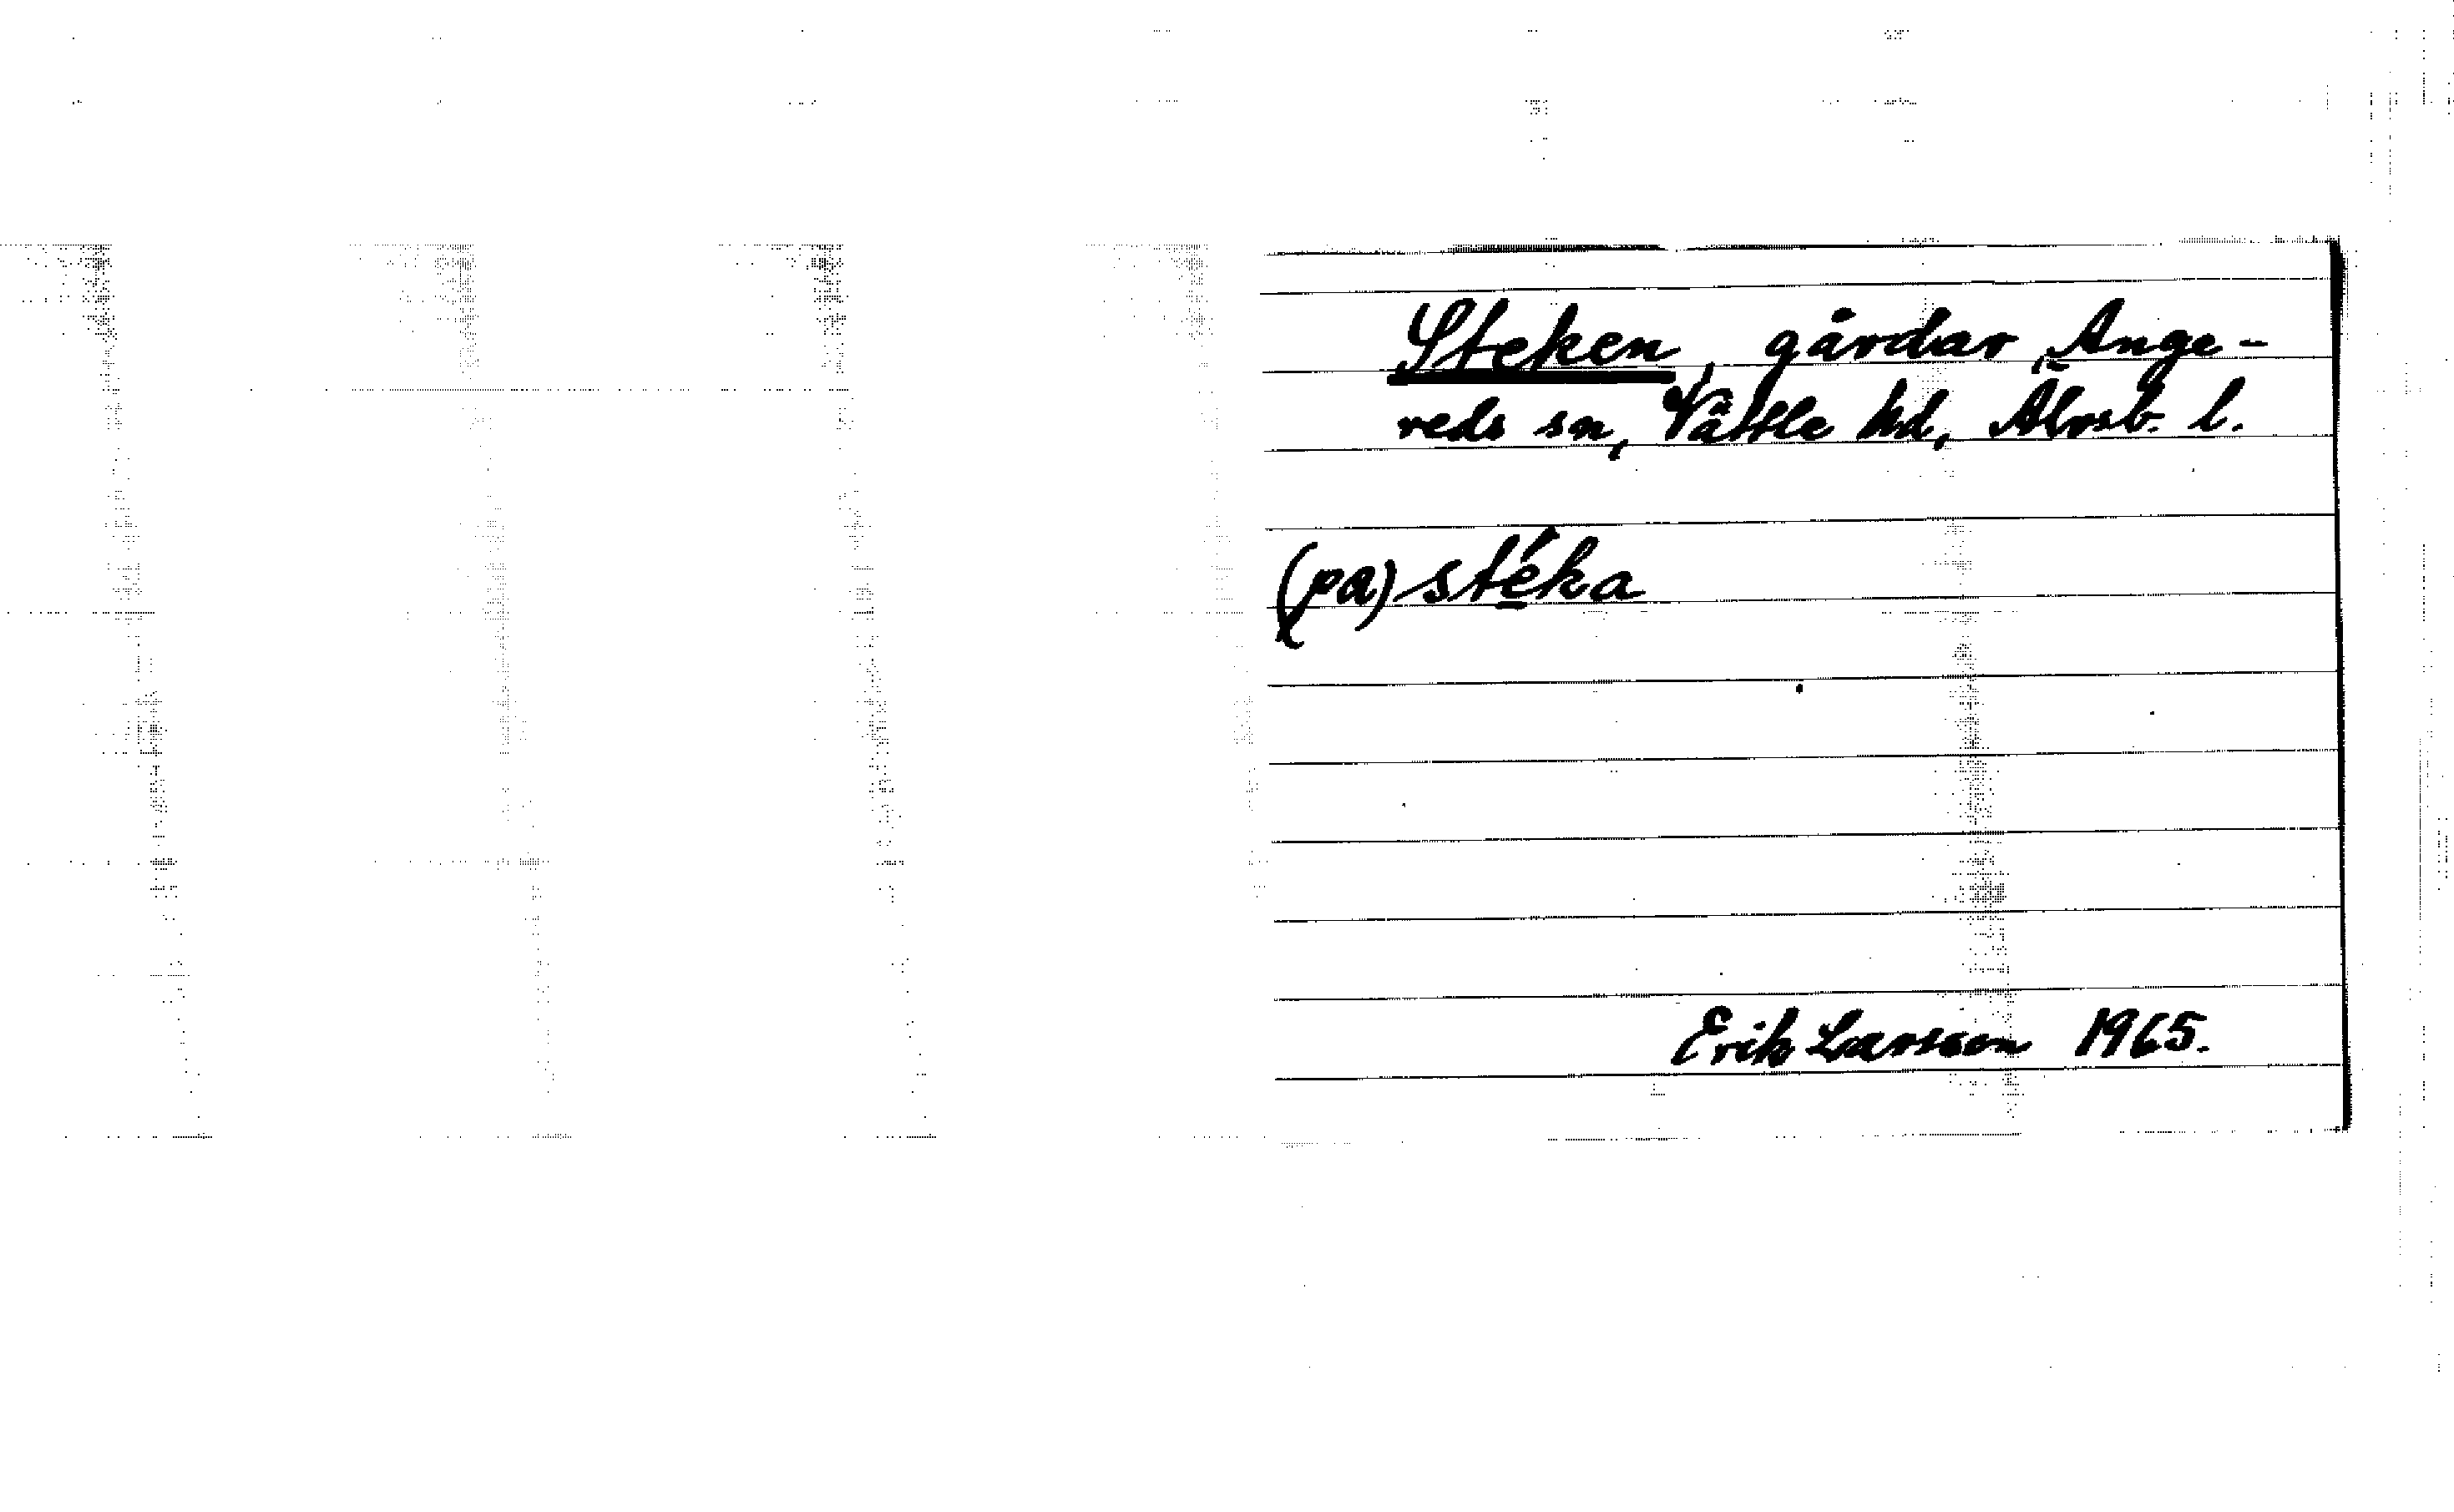 Steken, gårdar, Ange-
reds sn, Vättle hd, Älvsb. l.
(pa) stéka
Erik Larsson 1965.